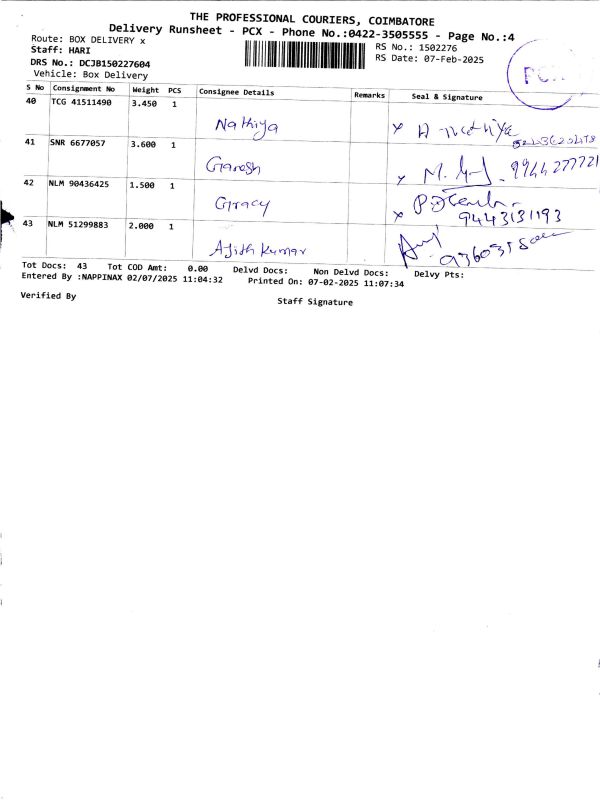 THE PROFESSIONAL COURIERS, COIMBATORE
Delivery Runsheet - PCX - Phone No.:0422-3505555 - Page No.:4
Route: BOX DELIVERY x
RS No.: 1502276
Staff: HARI
RS Date: 07-Feb-2025
DRS No.: DCJB150227604
Vehicle: Box Delivery
S No Consignment No Weight PCS Consignee Details Remarks Seal & Signature
40 TCG 41511490 3.450 1
Nathiya
41 SNR 6677057 3.600 1
Ganesh
M. 9944277721
42 NLM 90436425 1.500 1
Gracy
9443131193
43 NLM 51299883 2.000 1
Ajith kumar
Tot Docs: 43 Tot COD Amt: 0.00 Delvd Docs: Non Delvd Docs: Delvy Pts:
Entered By :NAPPINAX 02/07/2025 11:04:32 Printed On: 07-02-2025 11:07:34
Verified By
Staff Signature